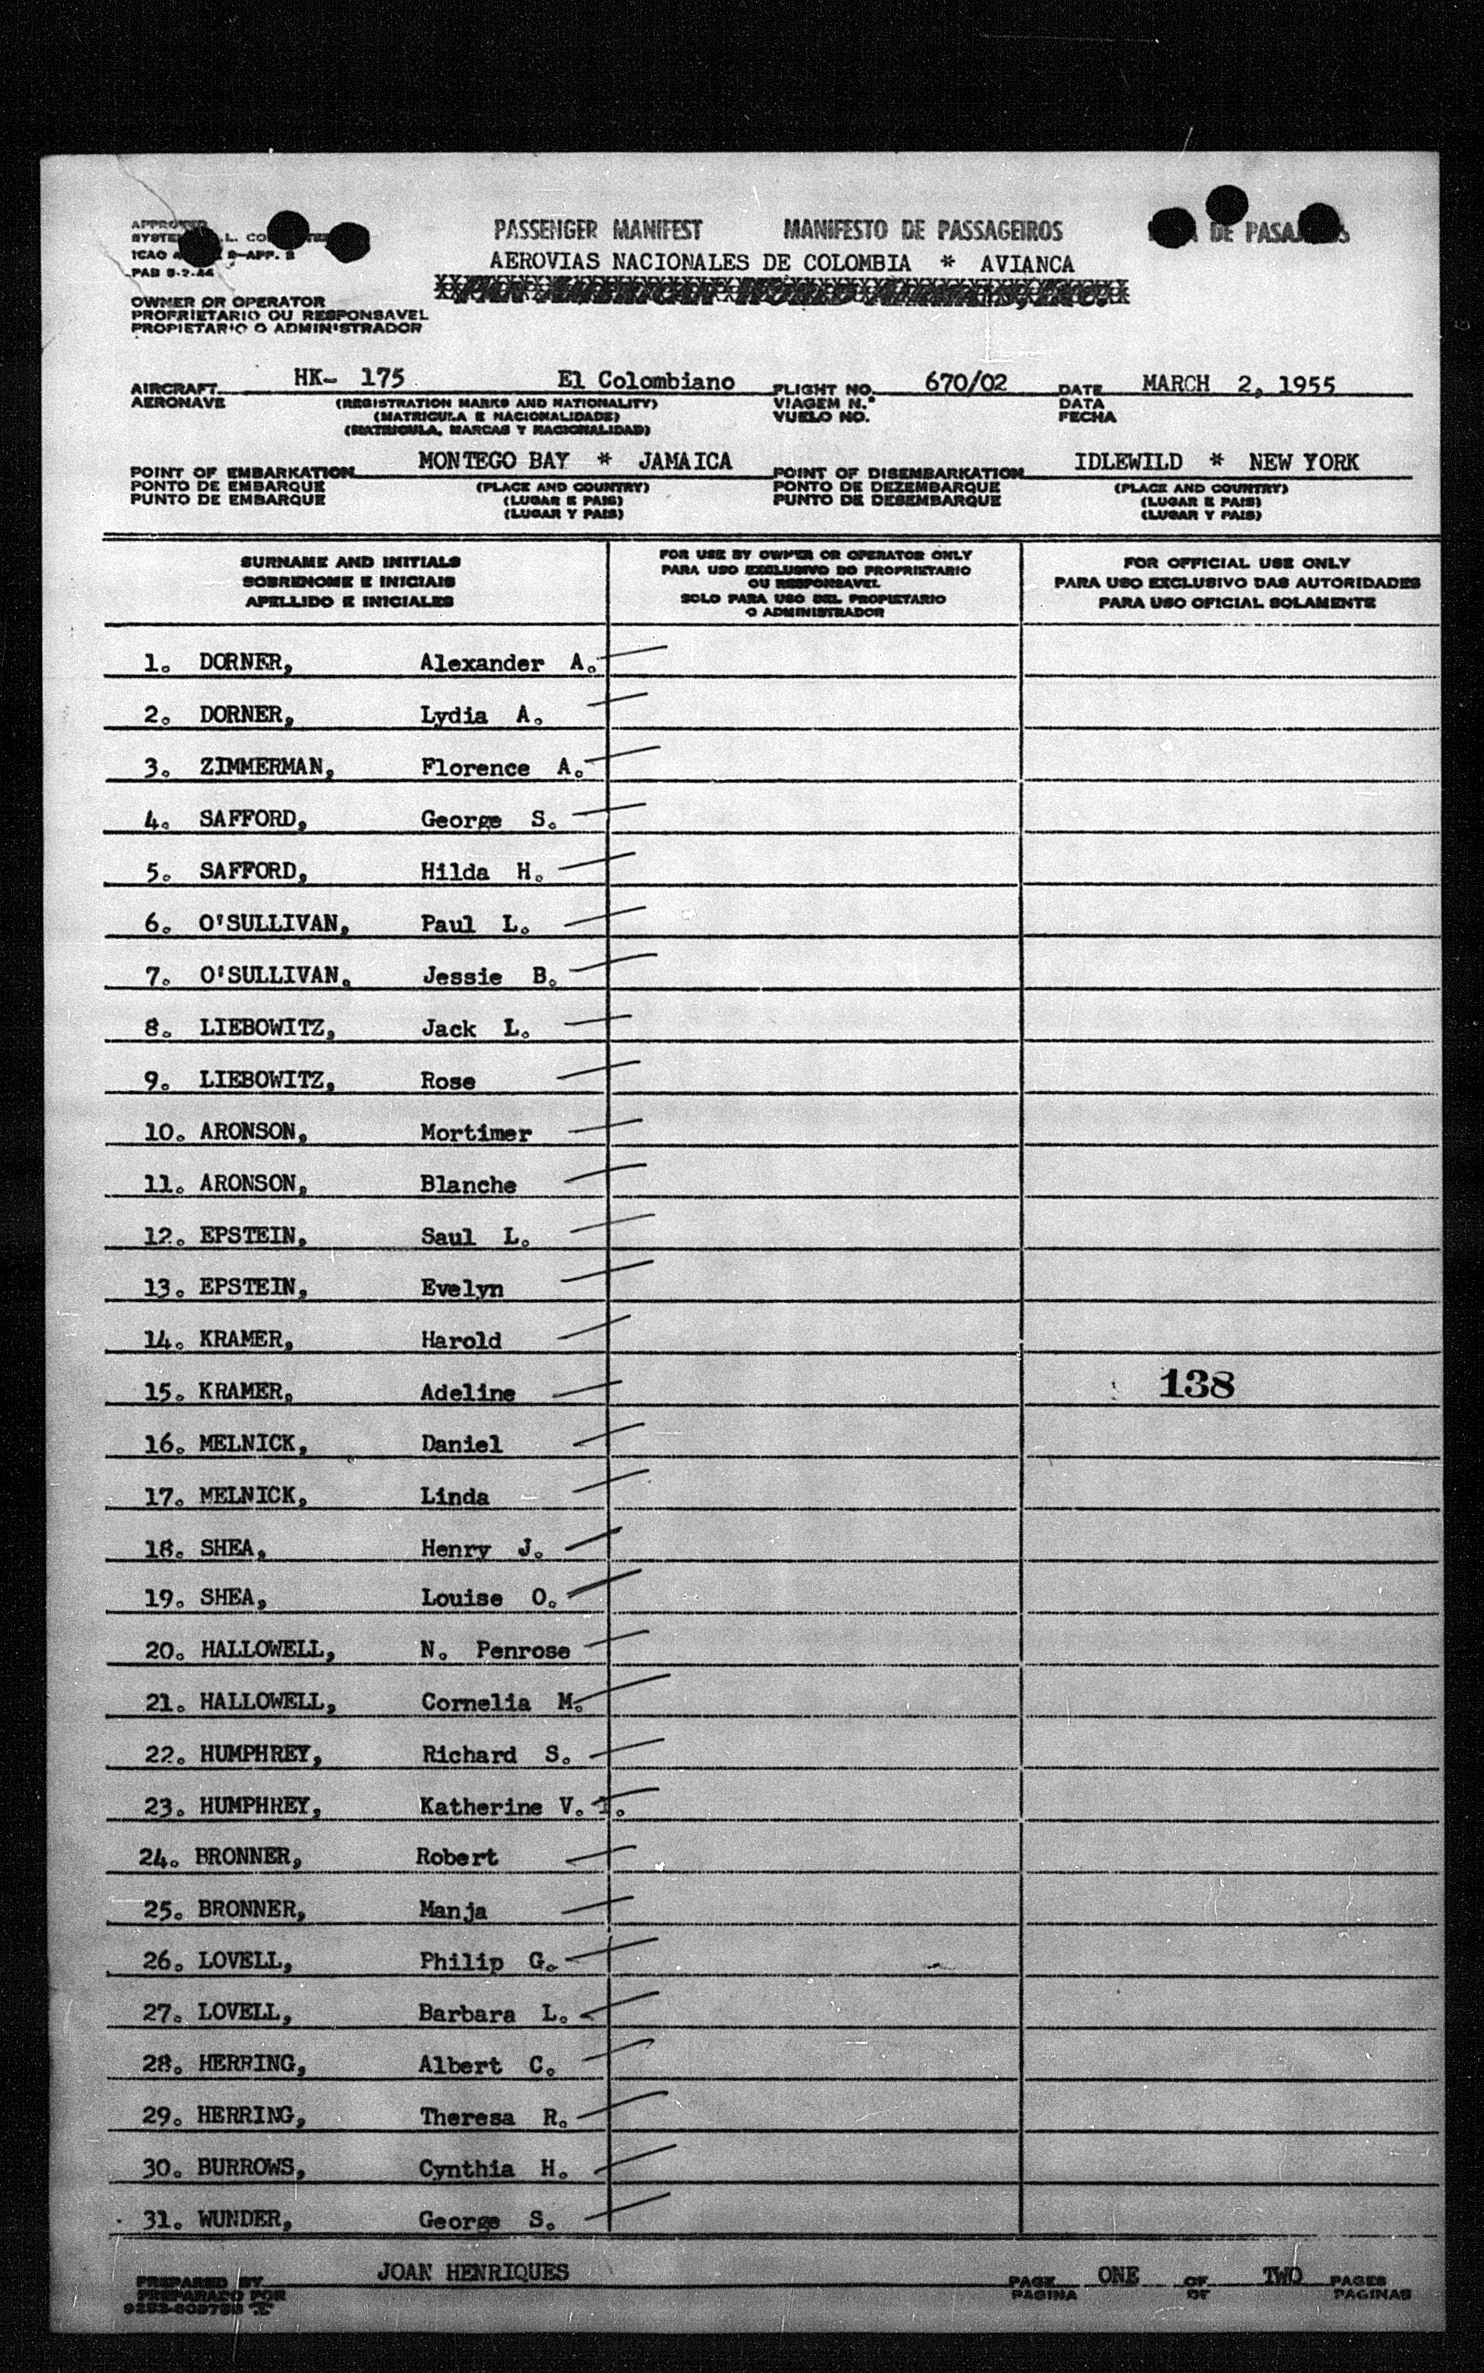 PASSENGER MANIFEST MANIFESTO DE PASSAGEIROS DE
AEROVIAS NACIONALES DE COLOMBIA * AVIANCA
PAN AMERICAN WORLD AIRWAYS, INC.
OWNER OR OPERATOR
PROPRIETARIO OU RESPONSAVEL
PROPIETARIO O ADMINISTRADOR
AIRCRAFT HK- 175 El Colombiano FLIGHT NO. 670/02 DATE MARCH 2, 1955
AERONAVE (REGISTRATION MARKS AND NATIONALITY) VIAGEM N.º DATA
(MATRICULA E NACIONALIDADE) VUELO NO. FECHA
(MATRICULA, MARCAS Y NACIONALIDAD)
POINT OF EMBARKATION MONTEGO BAY * JAMAICA POINT OF DISEMBARKATION IDLEWILD * NEW YORK
PONTO DE EMBARQUE (PLACE AND COUNTRY) PONTO DE DEZEMBARQUE (PLACE AND COUNTRY)
PUNTO DE EMBARQUE (LUGAR E PAIS) PUNTO DE DESEMBARQUE (LUGAR E PAIS)
(LUGAR Y PAIS) (LUGAR Y PAIS)
SURNAME AND INITIALS
SOBRENOME E INICIAIS
APELLIDO E INICIALES
FOR USE BY OWNER OR OPERATOR ONLY
PARA USO EXCLUSIVO DO PROPRIETARIO
OU RESPONSAVEL
SOLO PARA USO DEL PROPIETARIO
O ADMINISTRADOR
FOR OFFICIAL USE ONLY
PARA USO EXCLUSIVO DAS AUTORIDADES
PARA USO OFICIAL SOLAMENTE
1. DORNER, Alexander A.
2. DORNER, Lydia A.
3. ZIMMERMAN, Florence A.
4. SAFFORD, George S.
5. SAFFORD, Hilda H.
6. O'SULLIVAN, Paul L.
7. O'SULLIVAN, Jessie B.
8. LIEBOWITZ, Jack L.
9. LIEBOWITZ, Rose
10. ARONSON, Mortimer
11. ARONSON, Blanche
12. EPSTEIN, Saul L.
13. EPSTEIN, Evelyn
14. KRAMER, Harold
15. KRAMER, Adeline 138
16. MELNICK, Daniel
17. MELNICK, Linda
18. SHEA, Henry J.
19. SHEA, Louise O.
20. HALLOWELL, N. Penrose
21. HALLOWELL, Cornelia M.
22. HUMPHREY, Richard S.
23. HUMPHREY, Katherine V.
24. BRONNER, Robert
25. BRONNER, Manja
26. LOVELL, Philip G.
27. LOVELL, Barbara L.
28. HERRING, Albert C.
29. HERRING, Theresa R.
30. BURROWS, Cynthia H.
31. WUNDER, George S.
PREPARED BY JOAN HENRIQUES PAGE ONE OF TWO PAGES
PREPARADO POR PAGINA OF PAGINAS